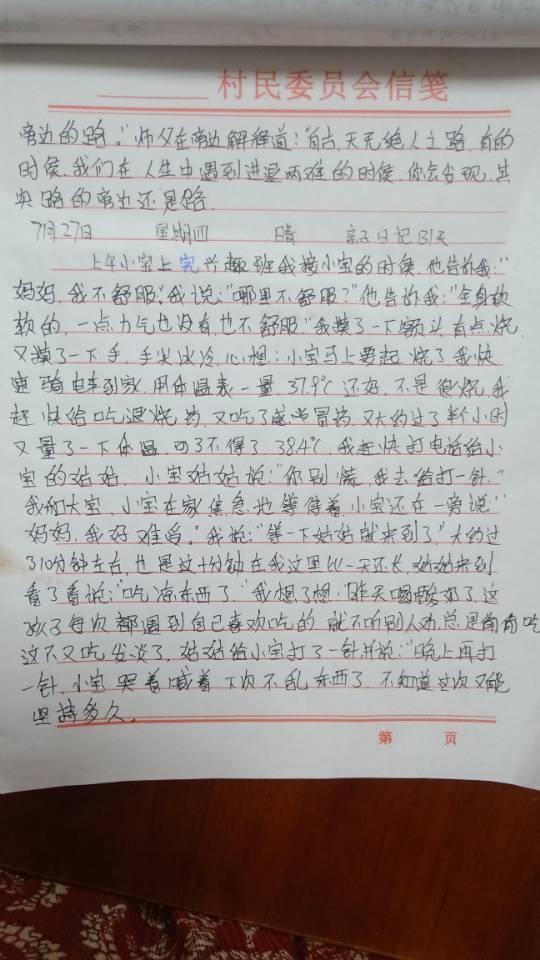 村民委员会信笺
旁边的路。"师父在旁边解释道:"自古,天无绝人之路,有的
时候,我们在人生中遇到进退两难的时候,你会发现,其
实路的旁边还是路.
7月27日 星期四 晴 亲子日记131天
上午小宝上完兴趣班我接小宝的时候,他告诉我:"
妈妈,我不舒服."我说:"哪里不舒服?"他告诉我:"全身软
软的,一点力气也没有,也不舒服"我摸了一下额头有点烧,
又摸了一下手,手尖冰冷,心想:小宝马上要起烧了我快
速骑电车到家,用体温表一量,37.9℃还好,不是很烧,我
赶快给吃退烧药,又吃了感冒药,又大约过了半个小时
又量了一下体温,可了不得了,38.4℃,我赶快打电话给小
宝的姑姑,小宝姑姑说:"你别慌,我去给打一针."
我和大宝,小宝在家焦急地等侍着,小宝还在一旁说:"
妈妈,我好难受."我说:"等一下姑姑就来到了."大约过
了10分钟左右,也是这十分钟在我这里比一天还长,姑姑来到
看了看说:"吃凉东西了."我想了想,昨天喝酸奶了,这
孩子每次都遇到自己喜欢吃的,就不听别人劝总是偷偷吃
这不又吃发炎了,姑姑给小宝打了一针并说:"晚上再打
一针,小宝哭着喊着下次不乱东西了,不知道这次又能
坚持多久。
第 页